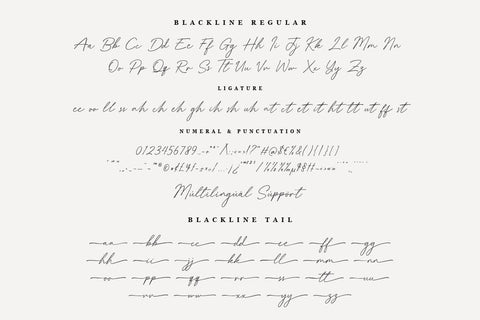 BLACKLINE REGULAR
Aa Bb Cc Dd Ee Ff Gg Hh Ii Jj Kk Ll Mm Nn
Oo Pp Qq Rr Ss Tt Uu Vv Ww Xx Yy Zz
LIGATURE
ee oo ll ss ah ch eh gh ih sh uh at ct et it ht tt ut ff st
NUMERAL & PUNCTUATION
0123456789
Multilingual Support
BLACKLINE TAIL
aa bb cc dd ee ff gg
hh ii jj kk ll mm nn
oo pp qq rr ss tt uu
vv ww xx yy zz